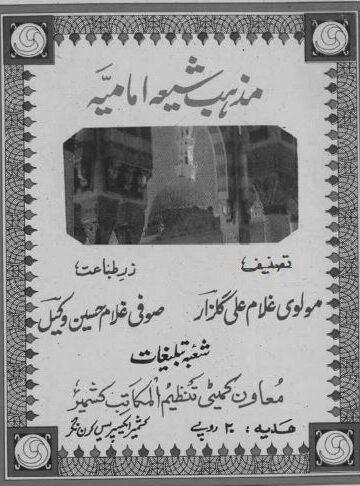 مذہب شیعہ امامیہ
تصنیف زرِ طباعت
مولوی غلام علی گلزار صوفی غلام حسین وکیل
شعبۂ تبلیغات
معاون کمیٹی تنظیم المکاتب کشمیر
ھدیہ: ۲۰ روپے کشمیر ایکسپریس کرن نگر